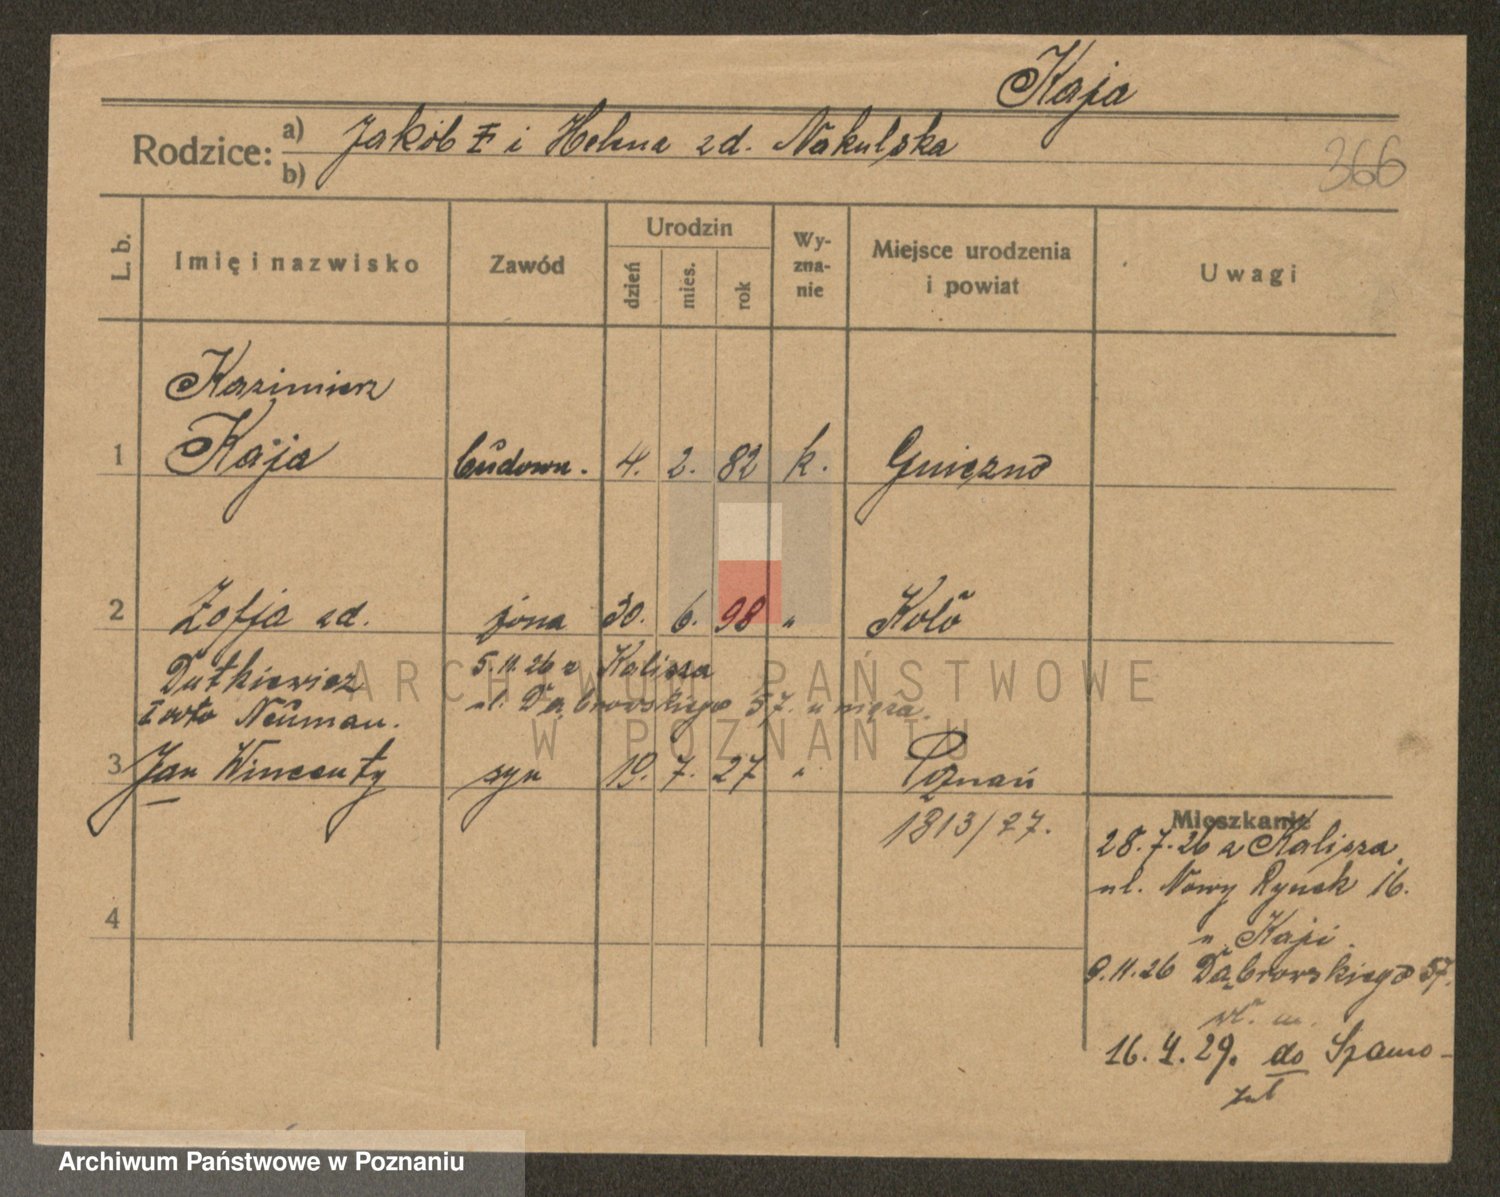 Kaja
Rodzice: a) b) Jakób i Helena zd. Nakulska
366
L. b.
Imię i nazwisko
Zawód
Urodzin
dzień
mies.
rok
Wy-
zna-
nie
Miejsce urodzenia
i powiat
Uwagi
Kazimierz
1 Kaja budown. 4. 2. 82 k. Gniezno
2 Zofja zd. żona 30. 6. 98 " Koło
Dutkiewicz 5.11.26 z Kalisza
I voto Neuman. ul. Dąbrowskiego 57. u męża.
3 Jan Wincenty syn 19. 7. 27 " Poznań
1813/27.
4
Mieszkanie
28.7.26 z Kalisza
ul. Nowy Rynek 16.
u Kaji.
9.11.26 Dąbrowskiego 57.
wł. m.
16.4.29. do Szamo-
tuł
ARCHIWUM PAŃSTWOWE
W POZNANIU
Archiwum Państwowe w Poznaniu